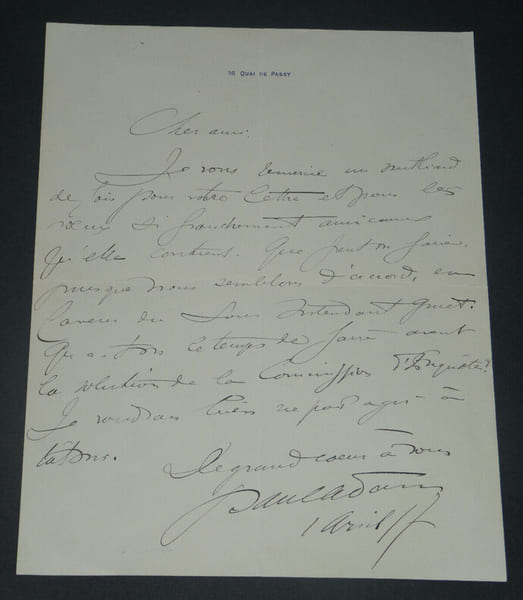 56 QUAI DE PASSY
Cher ami:
Je vous remercie un milliard
de fois pour votre lettre et pour les
vœux si franchement amicaux
qu'elle contient. Que peut on faire,
puisque nous semblons d'accord, en
faveur du Sous Intendant
le temps de faire avant
la solution de la Commission d'Enquête?
Je voudrais bien ne pas agir à
tâtons.
De grand coeur à vous
Paul Adam
1 Avril 17